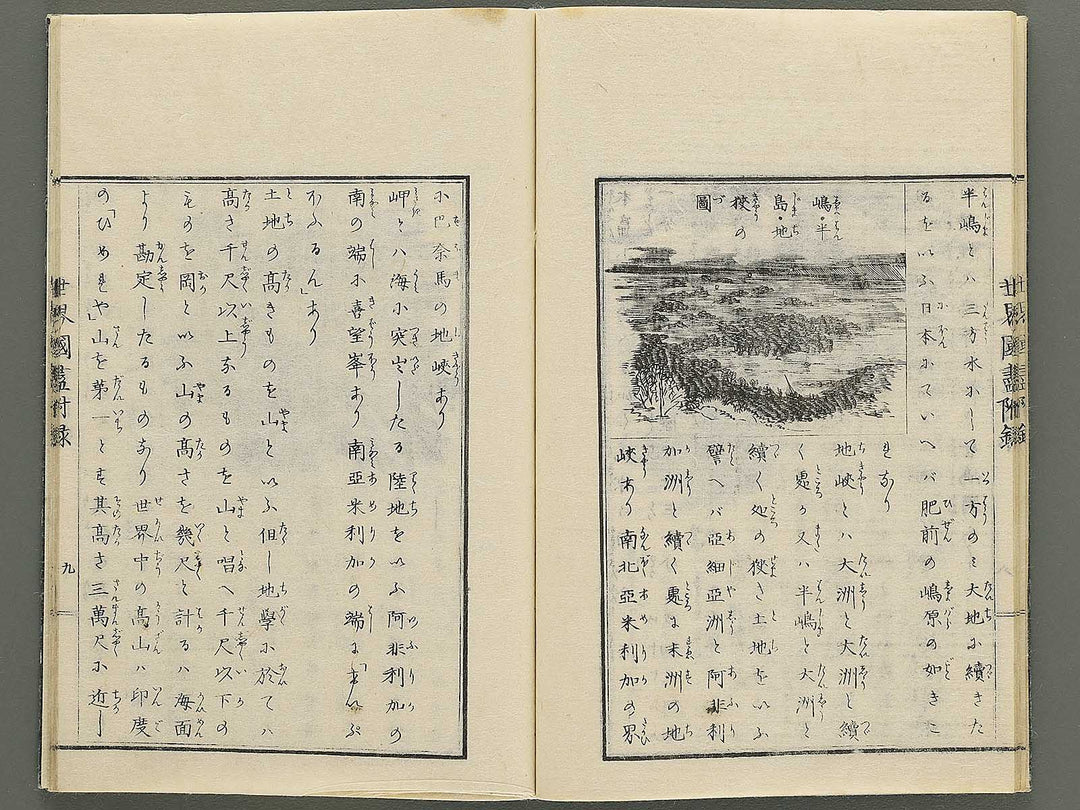 半嶋とハ三方水にして一方のミ大地に續きた
るを以ふ日本にていへバ肥前の嶋原の如きこ
れなり
地峽とハ大洲と大洲と續
く處か又ハ半嶋と大洲と
續く処の狹き土地をいふ
譬へバ亞細亞洲と阿非利
加洲と續く處に末洲の地
峽あり南北亞米利加の界
嶋・半
島・地
狹の
圖
世界國盡附録
に巴奈馬の地峽あり
岬とハ海に突出したる陸地を以ふ阿非利加の
南の端に喜望峯あり南亞米利加の端に「
ほふるん」あり
土地の髙きものを山と以ふ但し地學に於てハ
髙さ千尺以上なるものを山と唱へ千尺以下の
ものを岡と以ふ山の髙さを幾尺と計るハ海面
より勘定したるものなり世界中の髙山ハ印度
の「ひめれや」山を第一とす其髙さ三萬尺に近し
世界國盡附録
九